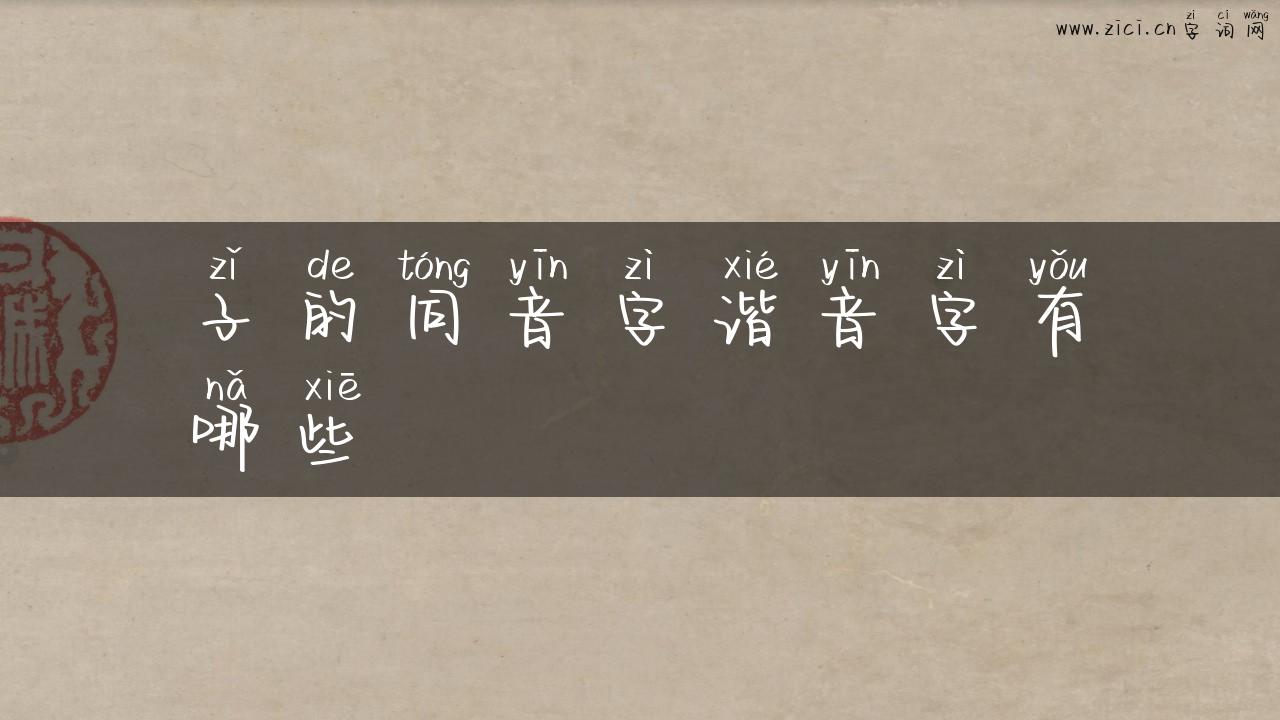 zì cí wǎng
www.zici.cn 字词网
zǐ de tóng yīn zì xié yīn zì yǒu
子的同音字谐音字有
nǎ xiē
哪些